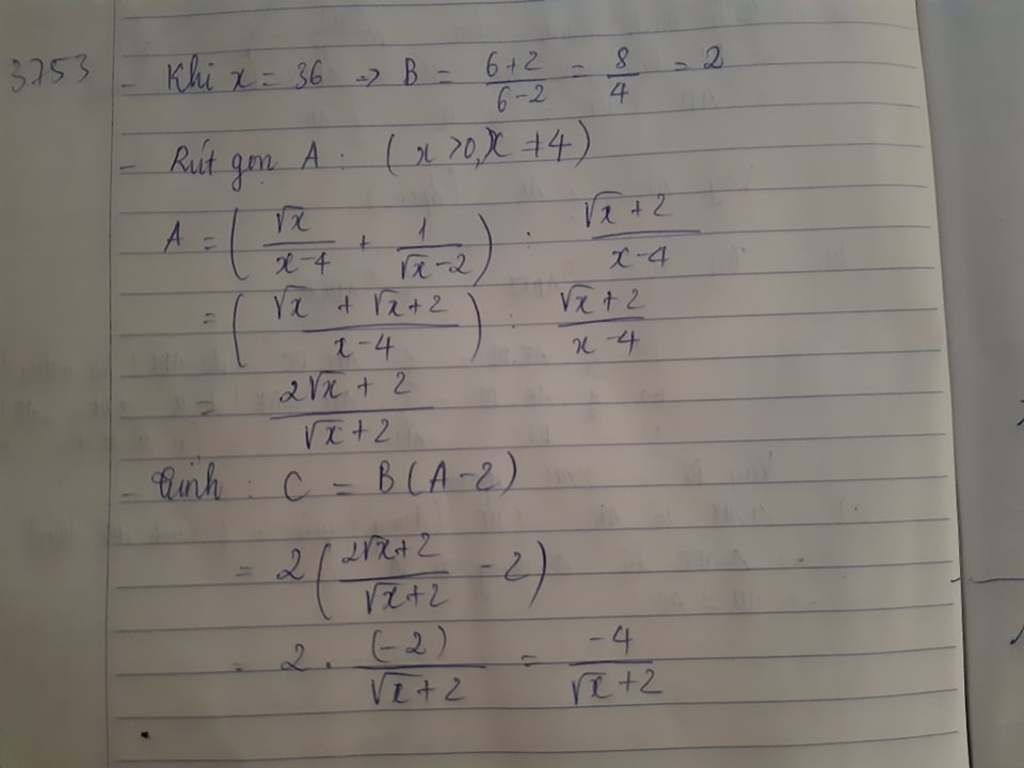 3753
- Khi x = 36 => B = \frac{6+2}{6-2} = \frac{8}{4} = 2
- Rút gọn A : (x > 0, x ≠ 4)
A = ( \frac{√x}{x-4} + \frac{1}{√x-2} ) : \frac{√x+2}{x-4}
= ( \frac{√x + √x+2}{x-4} ) : \frac{√x+2}{x-4}
= \frac{2√x + 2}{√x+2}
- Tính : C = B(A-2)
= 2 ( \frac{2√x+2}{√x+2} - 2 )
= 2 . \frac{(-2)}{√x+2} = \frac{-4}{√x+2}